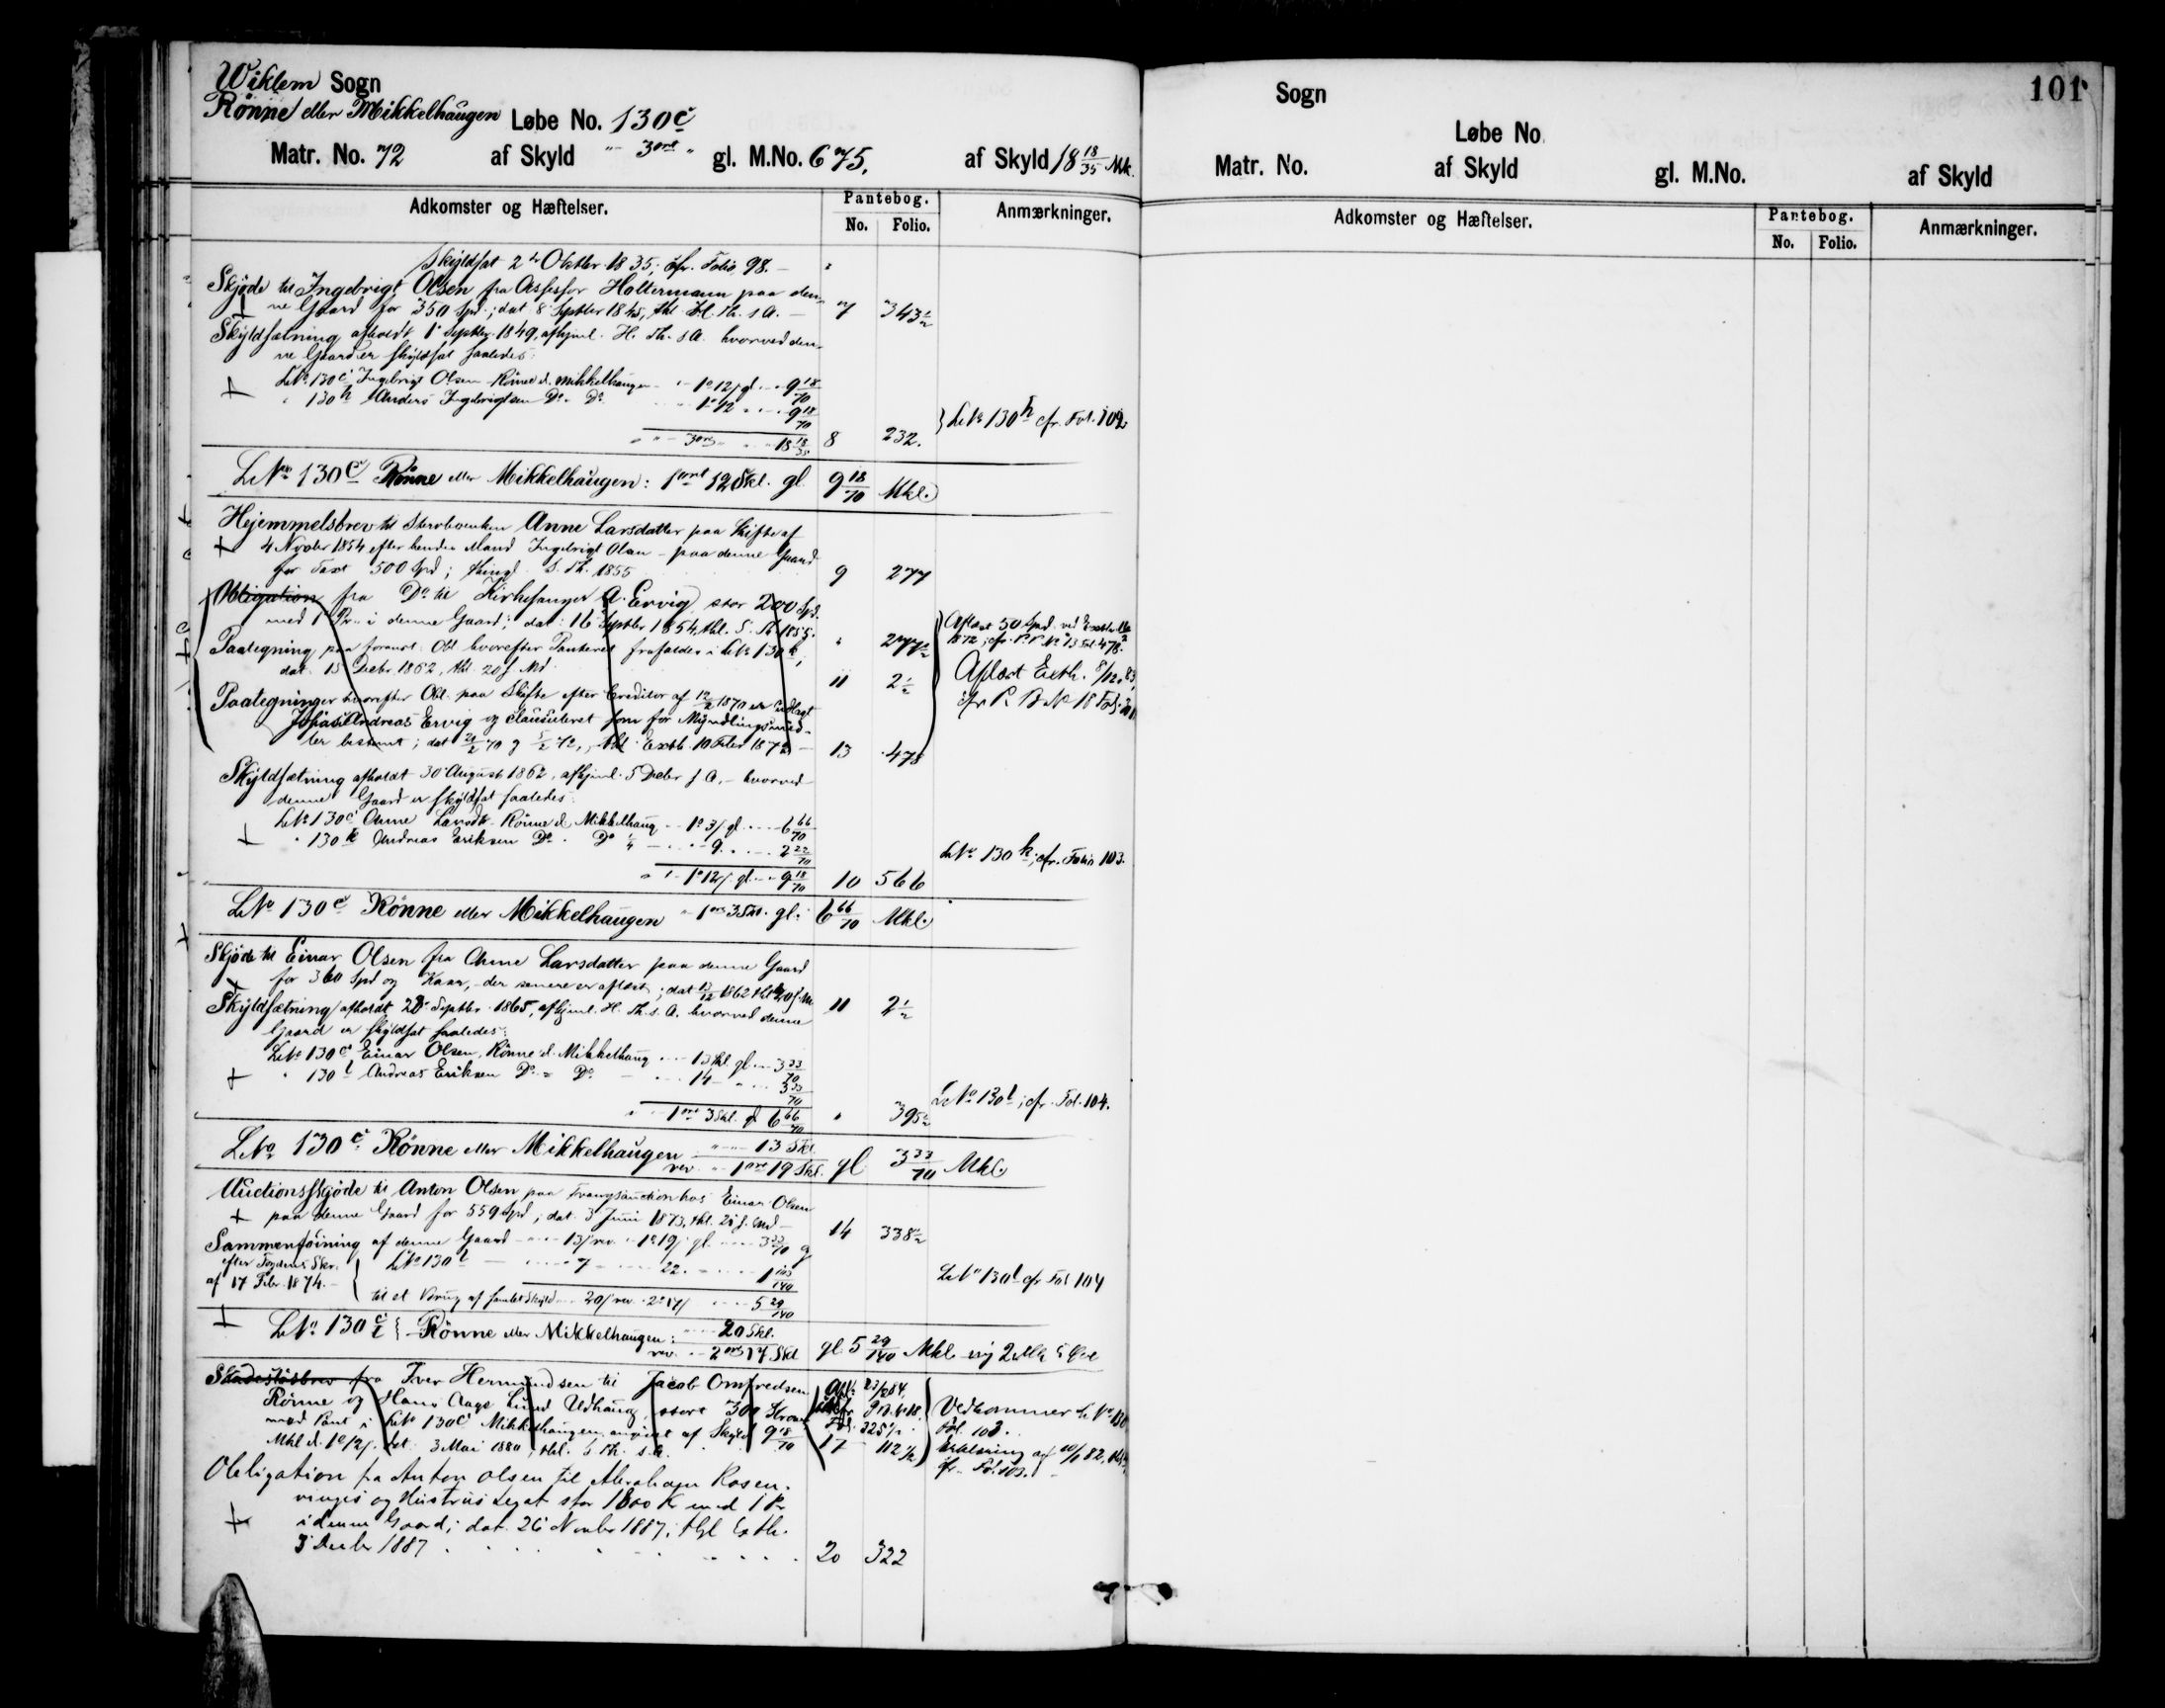 Wiklem Sogn
Rönne eller Mikkelhaugen Løbe No. 130c
Matr. No. 72 af Skyld " 3ort " gl. M.No. 675. af Skyld 18 18/35 Mk.
Adkomster og Hæftelser. Pantebog. No. Folio. Anmærkninger.
Skyldsat 2 Oktbr 1835; cfr. Folio 98.
Skjøde til Ingebrigt Olsen fra Assessor Holtermann paa den-
ne Gaard for 350 Spd.; dat 8 Septbr 1845, thl. H. Th. s. A. 7 343½
Skyldsætning afholdt 1 Septbr. 1849, afhjml. H. Th. s. A. hvorved den-
ne Gaard er skyldsat saaledes:
LNo. 130c Ingebrigt Olsen Rönne el. Mikkelhaugen 1 12 gl. 9 18/70
" 130h Anders Ingebrigtsen Do. Do. 1 12 9 18/70 } LNo 130h cfr. Fol. 102
" 3ort 18 18/35 8 232.
LNo. 130c Rönne eller Mikkelhaugen: 1 ort 12 Skl. gl. 9 18/70 Mkl.
Hjemmelsbrev til Anne Larsdatter paa Skifte af
4 Novbr 1854 efter hendes Mand Ingebrigt Olsen paa denne Gaard
for Taxt 500 Spd; thingl. S. Th. 1855 9 277
Obligation fra Do til Kirkesanger A. Ervig stor 200 Spd.
med 1 Pr. i denne Gaard; dat. 16 Septbr 1854, thl. S. Th. 1855. " 277½
Aflæst 50 Spd. ved Extth.
1872; cfr. P. P. No 13 Fol 478.
Paategning paa foranst. Obl. hvorefter Panteret frafaldes i LNo 130k,
dat. 15 Decbr. 1862, thl. 20 f. Md. 11 2½
Aflæst Extth. 8/12 83,
cfr P. B. No 18 Fol.
Paategninger hvorefter Obl. paa Skifte efter Creditor af 12/2 1870 er udlagt
Johan Andreas Ervig og clausuleret som for Myndlingsmid-
ler bestemt; dat 70 og 5/2 72, thl. Extb. 10 Febr 1872 13 478
Skyldsætning afholdt 30 August 1862, afhjml. 5 Decbr s. A. hvorved
denne Gaard er skyldsat saaledes:
LNo 130c Anne Larsdtr. Rönne el. Mikkelhaug 1 3 gl. 6 66/70
" 130k Andreas Eriksen Do. Do 9 2 22/70 LNo 130k; cfr. Folio 103.
1 12 gl. 9 18/70 10 566
LNo 130c Rönne eller Mikkelhaugen 1 ort 3 Skl. gl. 6 66/70 Mkl.
Skjøde til Einar Olsen fra Anne Larsdatter paa denne Gaard
for 360 Spd og Kaar, der senere er aflæst; dat 15/12 1862 thl. 20 f. M. 11 2½
Skyldsætning afholdt 28 Septbr. 1865, afhjml. H. Th. s. A. hvorved denne
Gaard er skyldsat saaledes:
LNo 130c Einar Olsen, Rönne el. Mikkelhaug 13 Skl. gl. 3 33/70
" 130l Andreas Eriksen Do. Do. 14 3 33/70 LNo 130l; cfr. Fol. 104.
1 ort 3 Skl. gl 6 66/70 " 395½
LNo 130c Rönne eller Mikkelhaugen 13 Skl.
rev. 1 ort 19 Skl. gl 3 33/70 Mkl.
Auctionsskjøde til Anton Olsen paa Tvangsauction hos Einar Olsen
paa denne Gaard for 559 Spd; dat. 3 Juni 1873, thl. 20 f. Md 14 338½
Sammenføining af denne Gaard 13 rev 1 19 gl. 3 33/70 og
efter Fogdens Skr. LNo 130l 7 22. 1 103/140 LNo 130l cfr Fol 104
af 17 Febr. 1874. til et Brug af samlet Skyld 20 rev. 2 17 5 29/140
LNo. 130 c/l Rönne eller Mikkelhaugen: 20 Skl.
rev. 2 ort 17 Skl. gl. 5 29/140 Mkl.
Skadesløsbrev fra Iver Hermundsen til Jacob Omfredsen
Rönne og Hans Aage Lund Udhaug, stort 300 Kroner
med Pant i LNo 130c Mikkelhaugen angivet af Skyld 9 18/70
Mkl. dat. 3 Mai 1880, thl. S. Th. s. A. 17 112½
Vedkommer LNo 130
Fol. 103.
Erklæring af 82,
cfr. Fol. 103.
Obligation fra Anton Olsen til Abraham Rosen-
vinges og Hustrus Legat stor 1800 Kr med 1 Pr
i denne Gaard; dat. 26 Novbr 1887, thgl. Extb.
3 Decbr 1887 20 322
101
Sogn
Løbe No.
Matr. No. af Skyld gl. M.No. af Skyld
Adkomster og Hæftelser. Pantebog. No. Folio. Anmærkninger.